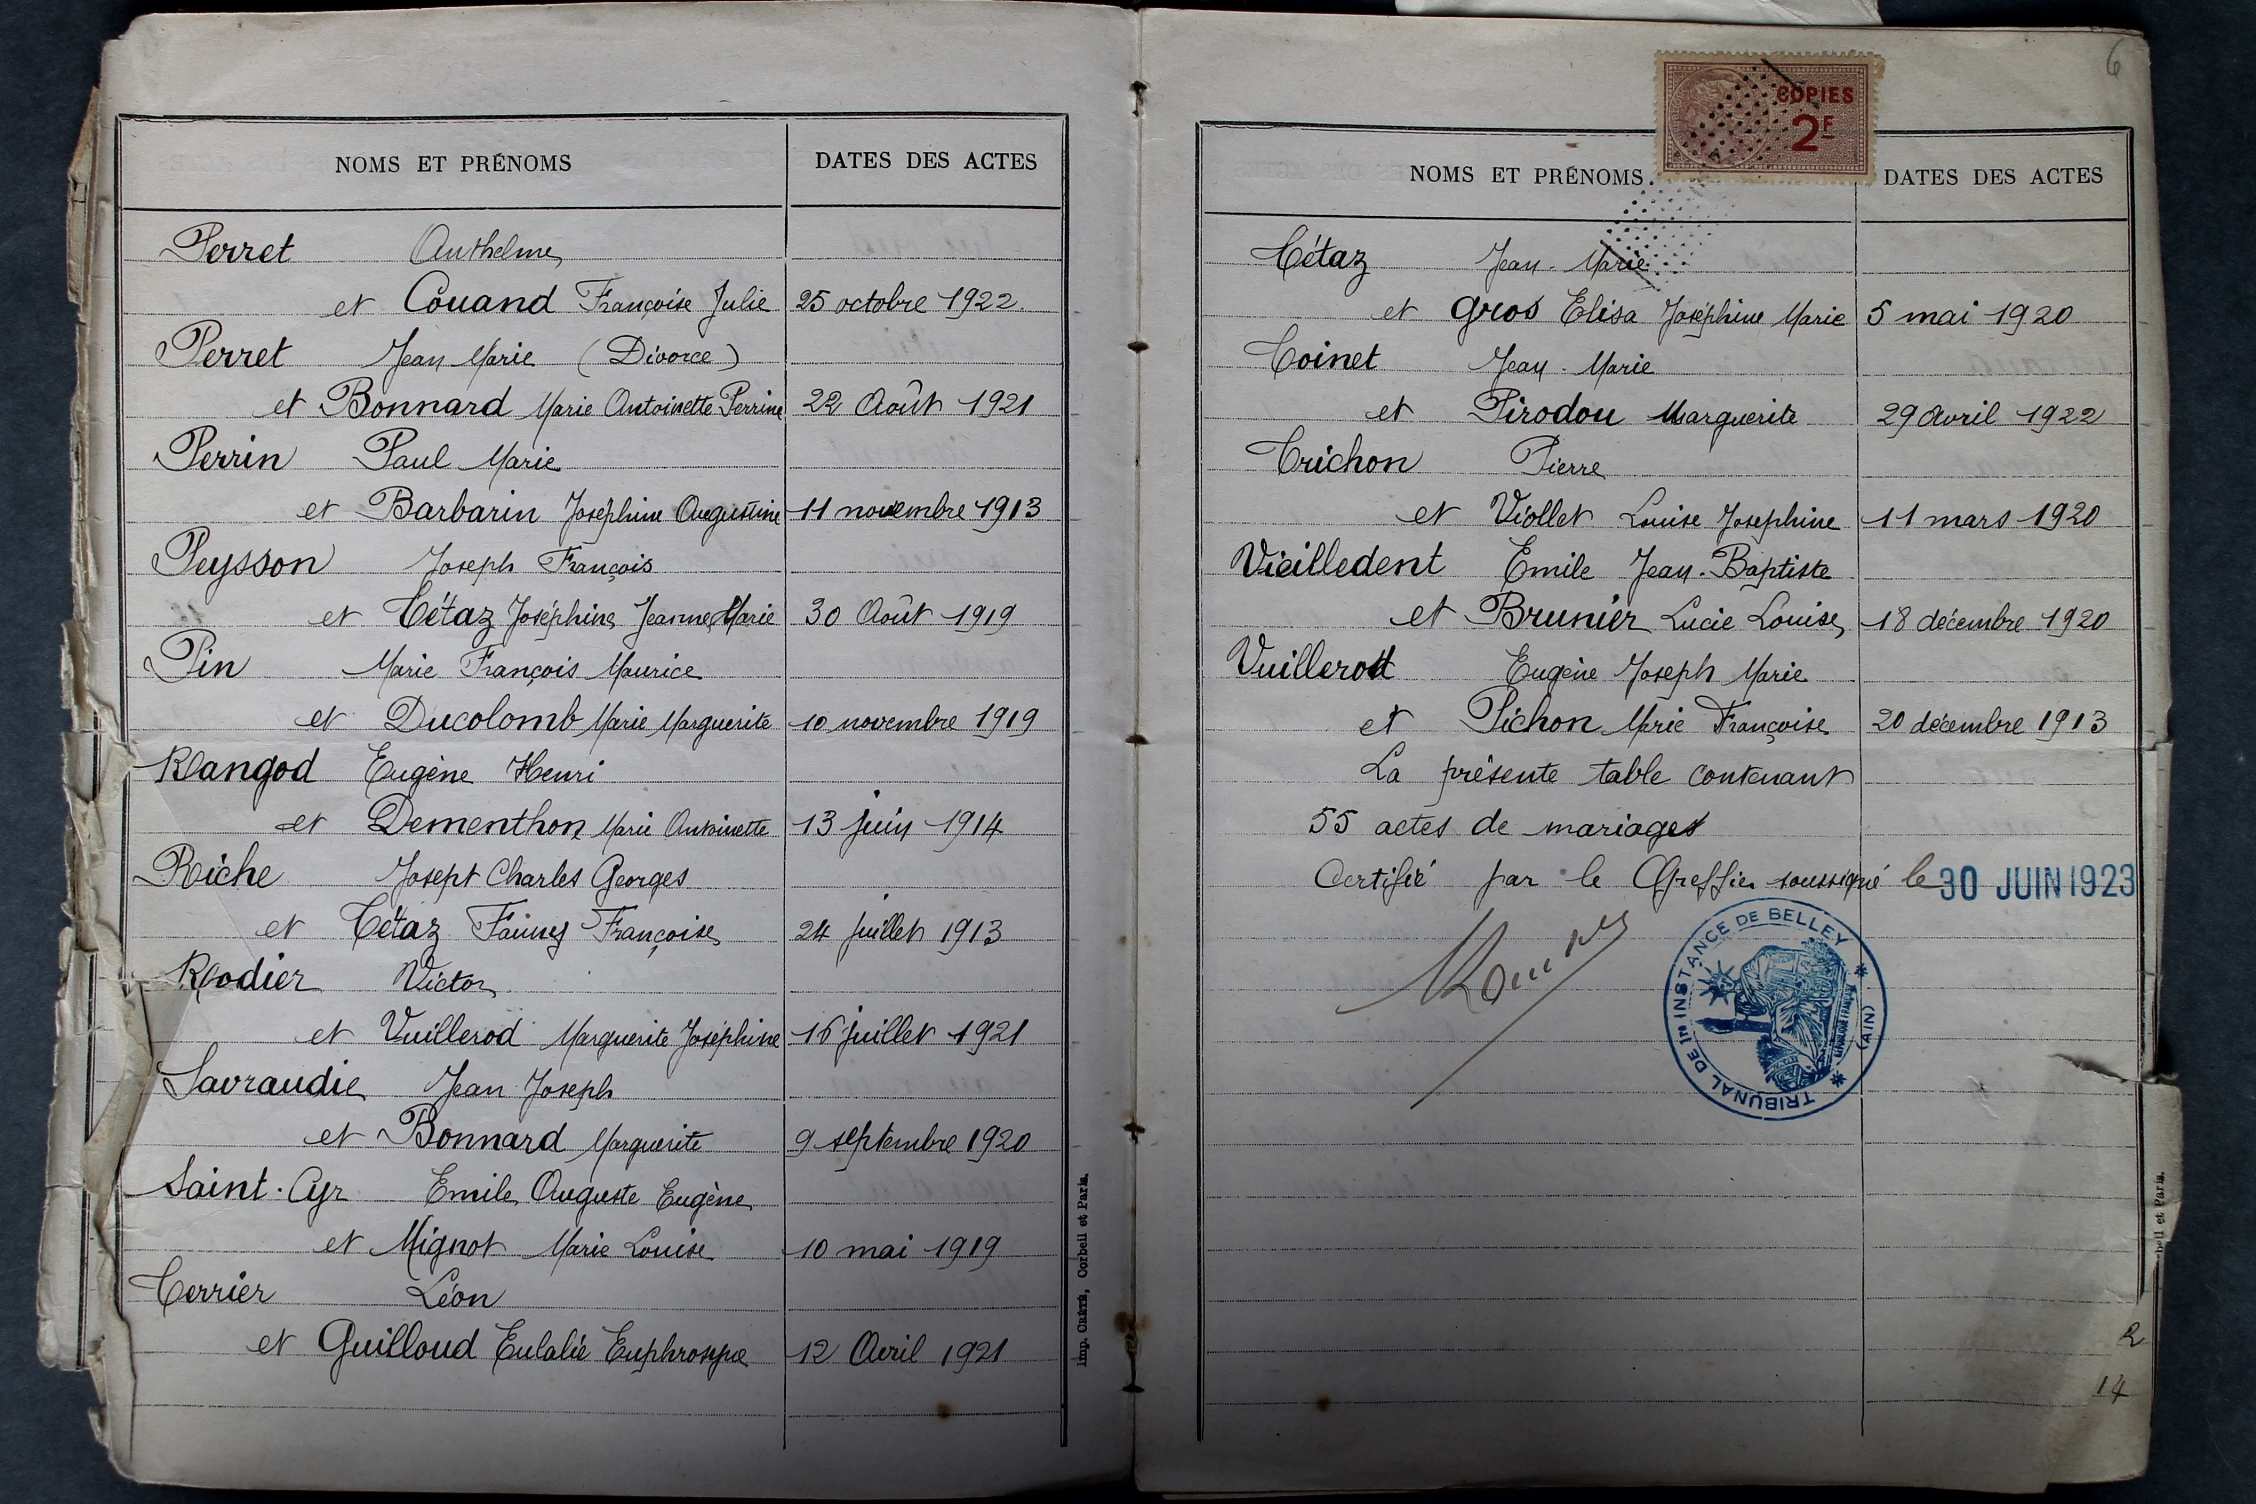 NOMS ET PRÉNOMS DATES DES ACTES
Perret Anthelme
et Couand Françoise Julie 25 octobre 1922
Perret Jean Marie (Divorce)
et Bonnard Marie Antoinette Perrine 22 Août 1921
Perrin Paul Marie
et Barbarin Joséphine Augustine 11 novembre 1913
Peysson Joseph François
et Tétaz Joséphine Jeanne Marie 30 Août 1919
Pin Marie François Maurice
et Ducolomb Marie Marguerite 10 novembre 1919
Rangod Eugène Henri
et Dementhon Marie Antoinette 13 juin 1914
Riche Josept Charles Georges
et Tétaz Fanny Françoise 24 juillet 1913
Rodier Victor
et Vuillerod Marguerite Joséphine 16 juillet 1921
Savraudie Jean Joseph
et Bonnard Marguerite 9 septembre 1920
Saint-Cyr Emile Auguste Eugène
et Mignot Marie Louise 10 mai 1919
Terrier Léon
et Guilloud Eulalie Euphrosyne 12 Avril 1921
Imp. CRÉTÉ, Corbeil et Paris.
6
COPIES
2F
NOMS ET PRÉNOMS DATES DES ACTES
Tétaz Jean-Marie
et Gros Elisa Joséphine Marie 5 mai 1920
Toinet Jean-Marie
et Pirodou Marguerite 29 Avril 1922
Trichon Pierre
et Viollet Louise Josephine 11 mars 1920
Vieilledent Emile Jean-Baptiste
et Brunier Lucie Louise 18 décembre 1920
Vuillerod Eugène Joseph Marie
et Pichon Marie Françoise 20 décembre 1913
La présente table contenant
55 actes de mariages
Certifié par le Greffier soussigné le 30 JUIN 1923
TRIBUNAL DE 1re INSTANCE DE BELLEY
(AIN)
beil et Paris.
2
14